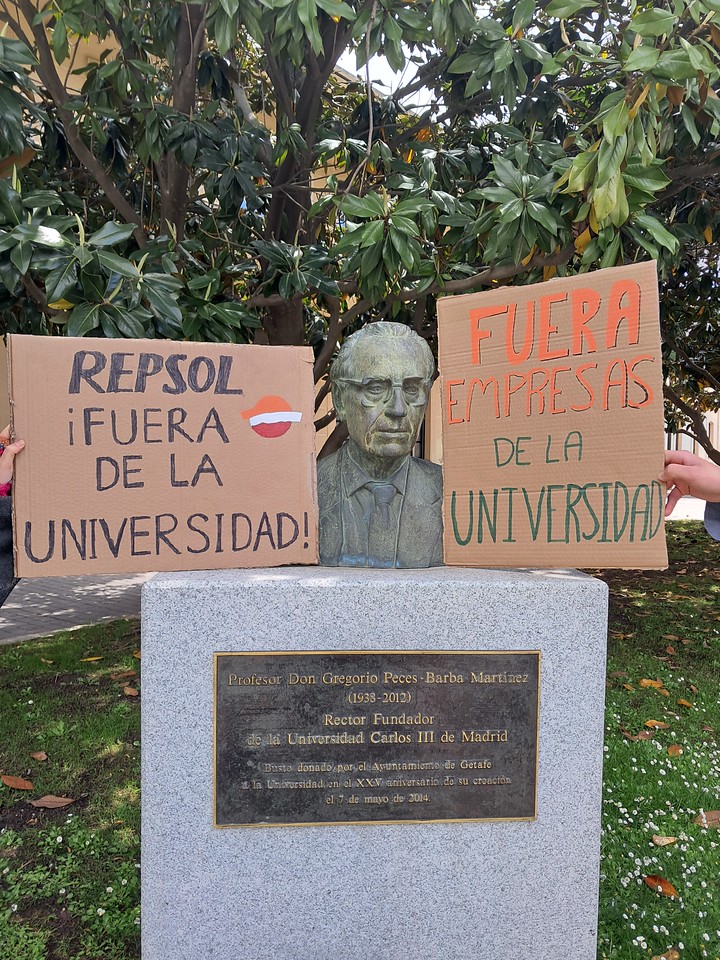 REPSOL
¡FUERA
DE LA
UNIVERSIDAD!
FUERA
EMPRESAS
DE LA
UNIVERSIDAD
Profesor Don Gregorio Peces-Barba Martínez
(1938-2012)
Rector Fundador
de la Universidad Carlos III de Madrid
Busto donado por el Ayuntamiento de Getafe
a la Universidad en el XXV aniversario de su creación
el 7 de mayo de 2014.